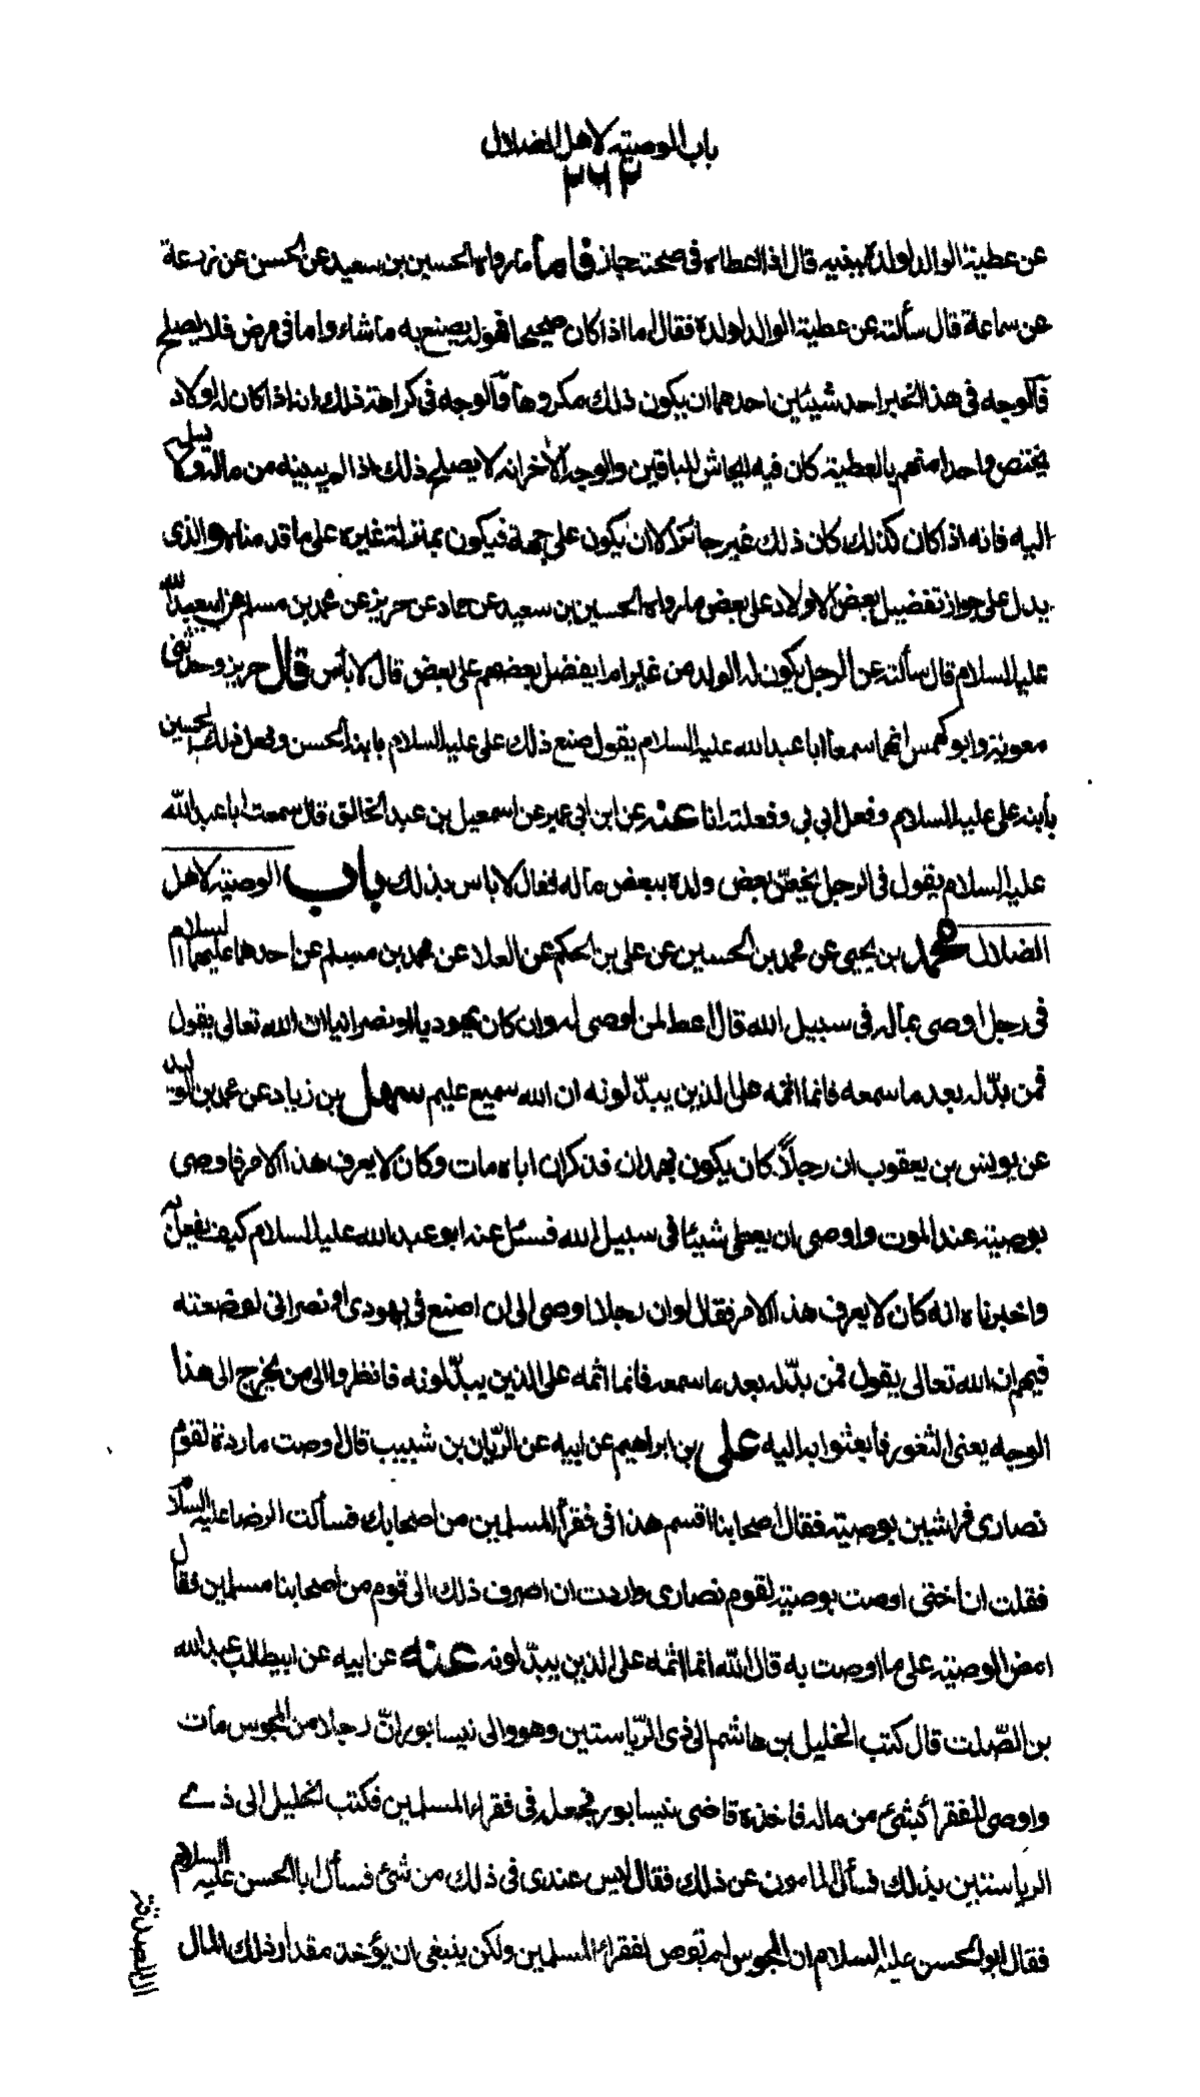 باب الوصية لاهل الضلال
٢٦٢
عن عطية الوالد لولده ببنيه قال اذا اعطاه فى صحته جاز فاما ما رواه الحسين بن سعيد عن الحسن عن زرعة
عن سماعة قال سألته عن عطية الوالد لولده فقال اما اذا كان صحيحا فهو له يصنع به ما شاء واما فى مرض فلا يصلح
فالوجه فى هذا الخبر احد شيئين احدهما ان يكون ذلك مكروها والوجه فى كراهة ذلك انه اذا كان له اولاد
يختص واحدا منهم بالعطية كان فيه ايحاش للباقين والوجه الاخر انه لا يصلح ذلك اذا لم يبينه من ماله ولا يسلمه
اليه فانه اذا كان كذلك كان ذلك غير جائز الا ان يكون على جهة فيكون بمنزلة غيره على ما قدمناه والذى
يدل على جواز تفضيل بعض الاولاد على بعض ما رواه الحسين بن سعيد عن حماد عن حريز عن محمد بن مسلم عن ابيعبد الله
عليه السلام قال سألته عن الرجل يكون له الولد من غير ام ايفضل بعضهم على بعض قال لا بأس قال حريز وحدثنى
معوية وابو كهمس انهما سمعا ابا عبد الله عليه السلام يقول صنع ذلك على عليه السلام بابنه الحسن وفعل ذلك الحسين
بأبنه على عليه السلام وفعل ابى بى وفعلته انا عنه عن ابن ابى عمير عن اسمعيل بن عبد الخالق قال سمعت ابا عبد الله
عليه السلام يقول فى الرجل يخص بعض ولده ببعض ماله فقال لا باس بذلك باب الوصية لاهل
الضلال محمد بن يحيى عن محمد بن الحسين عن على بن الحكم عن العلا عن محمد بن مسلم عن احدهما عليهما السلام
فى رجل اوصى بماله فى سبيل الله قال اعط لمن اوصى له وان كان يهوديا او نصرانيا ان الله تعالى يقول
فمن بدّله بعد ما سمعه فانما اثمه على الذين يبدّلونه ان الله سميع عليم سهل بن زياد عن محمد بن الوليد
عن يونس بن يعقوب ان رجلاً كان يكون بهمدان فذكر ان اباه مات وكان لا يعرف هذا الامر فاوصى
بوصية عند الموت واوصى ان يعطى شيئا فى سبيل الله فسئل عنه ابو عبد الله عليه السلام كيف يفعل به
واخبرناه انه كان لا يعرف هذا الامر فقال لو ان رجلا اوصى الى ان اصنع فى يهودى او نصرانى لوضعته
فيهم ان الله تعالى يقول فمن بدّله بعد ما سمعه فانما اثمه على الذين يبدّلونه فانظروا الى من يخرج الى هذا
الوجه يعنى الثغور فأبعثوا به اليه على بن ابراهيم عن ابيه عن الريّان بن شبيب قال اوصت ماردة لقوم
نصارى فراشين بوصية فقال اصحابنا اقسم هذا فى فقرأ المسلمين من اصحابك فسألت الرضا عليه السلام
فقلت ان أختى اوصت بوصية لقوم نصارى واردت ان اصرف ذلك الى قوم من اصحابنا مسلمين فقال
امض الوصية على ما اوصت به قال الله انما اثمه على الذين يبدّلونه عنه عن ابيه عن ابيطالب عبد الله
بن الصّلت قال كتب الخليل بن هاشم الى ذى الرّياستين وهو والى نيسابور انّ رجلا من المجوس مات
واوصى للفقرأ بشئ من ماله فاخذه قاضى نيسابور فجعله فى فقراء المسلمين فكتب الخليل الى ذى
الرياستين بذلك فسأل المامون عن ذلك فقال ليس عندى فى ذلك من شئ فسأل ابا الحسن عليه السلام
فقال ابو الحسن عليه السلام ان المجوس لم توص لفقراء المسلمين ولكن ينبغى ان يؤخذ مقدار ذلك المال